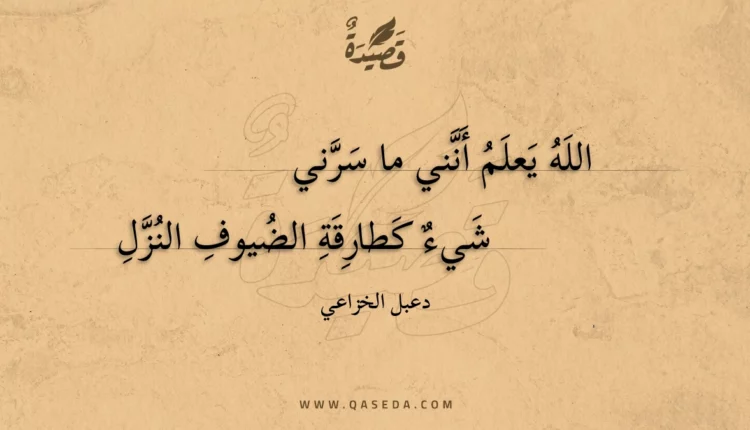 قَصِيدَةٌ
اللَهُ يَعلَمُ أَنَّني ما سَرَّني
شَيءٌ كَطارِقَةِ الضُيوفِ النُزَّلِ
دعبل الخزاعي
WWW.QASEDA.COM